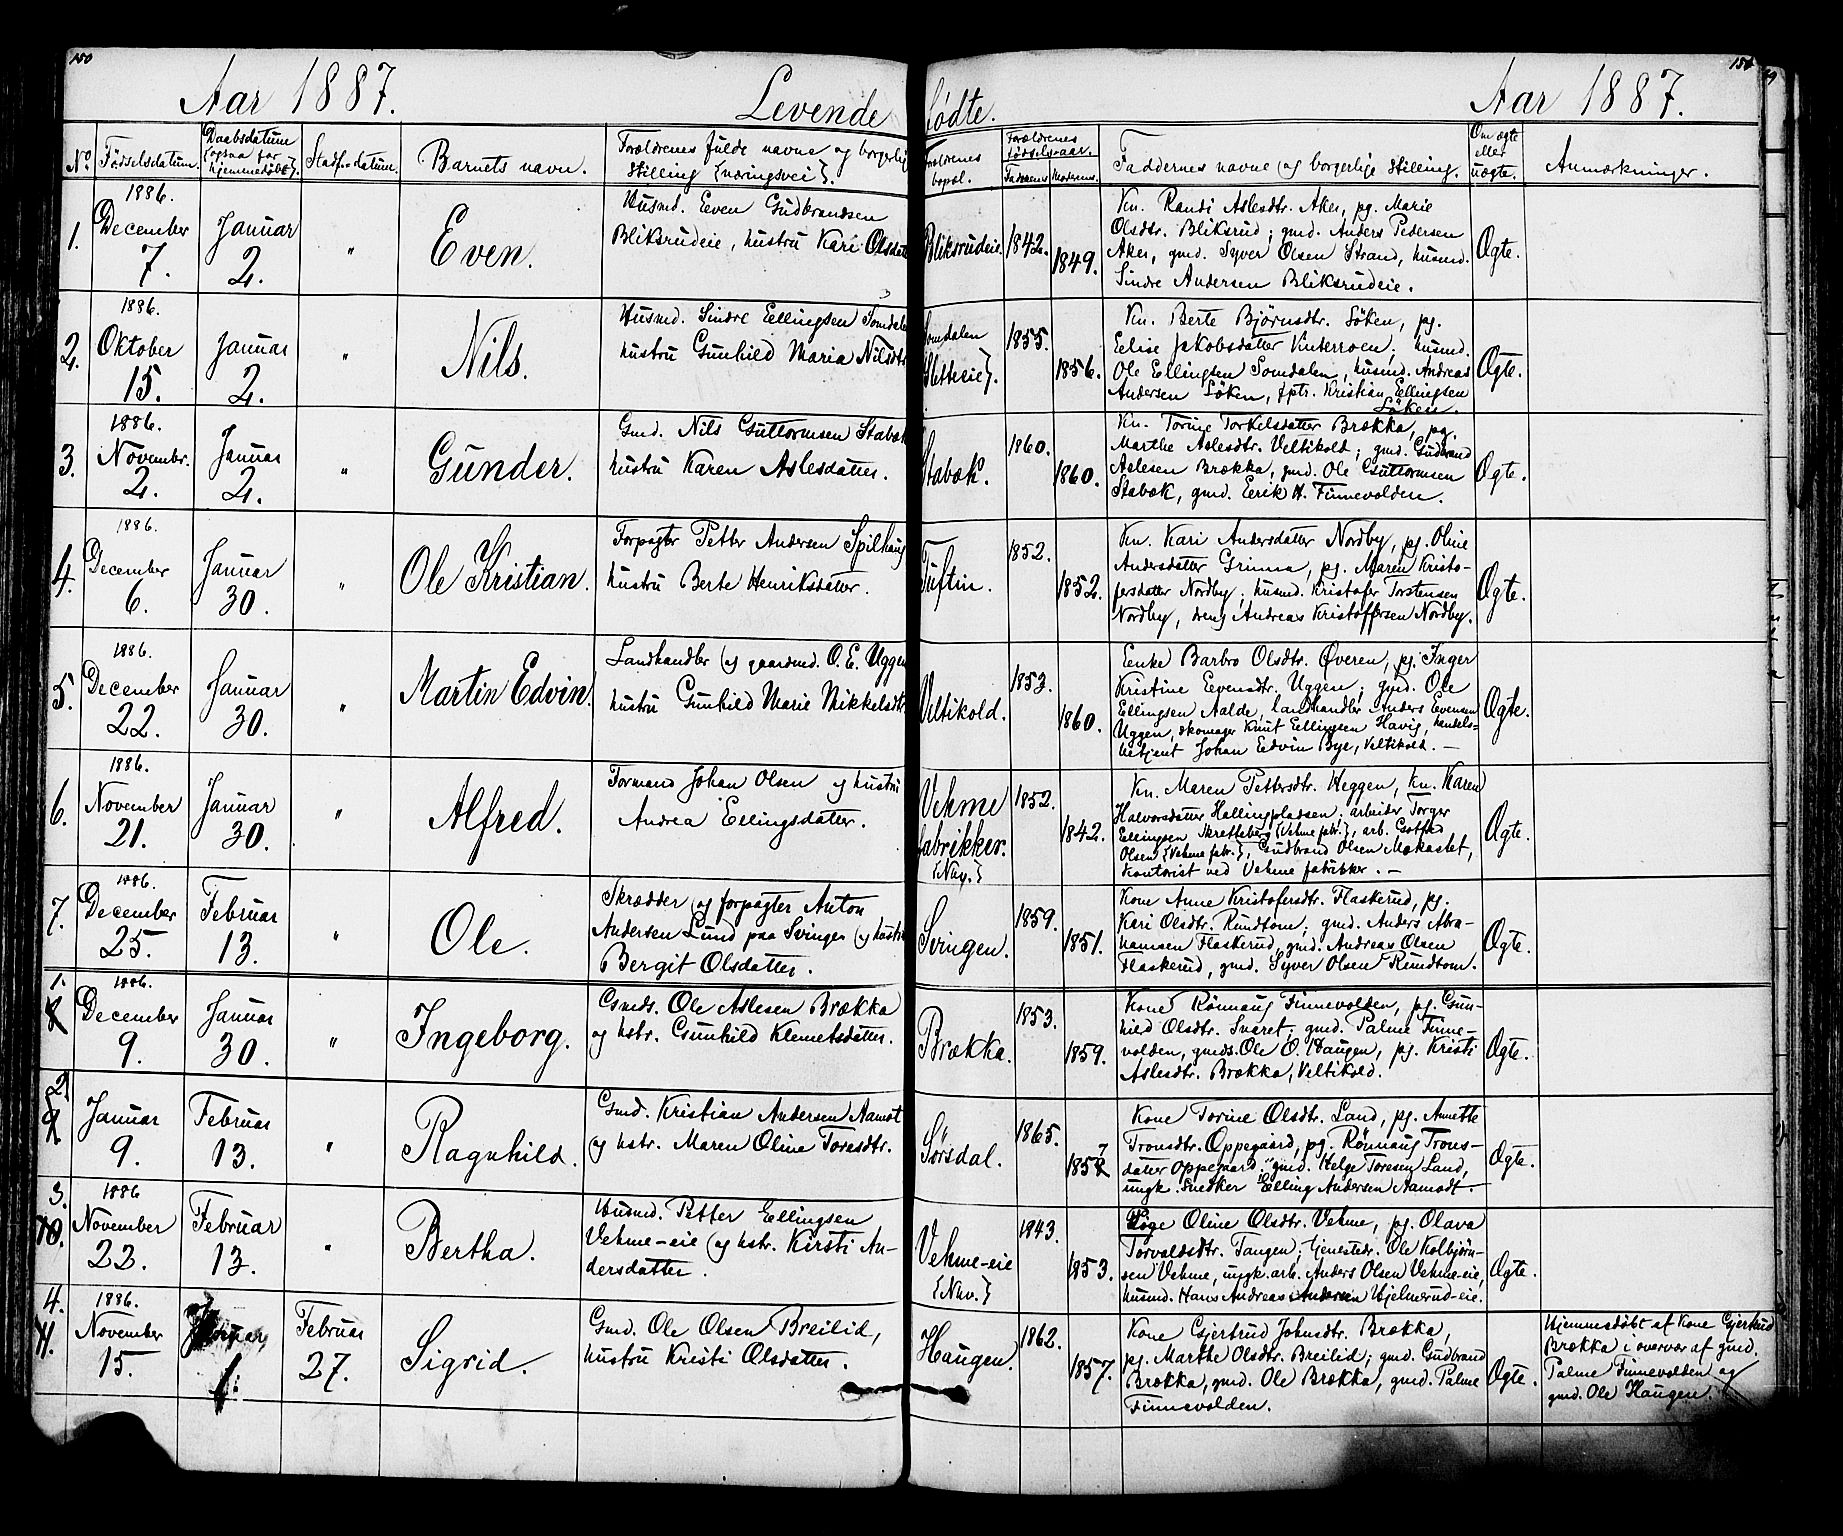 150
Aar 1887.
Levende
No
Fødselsdatum.
Daabsdatum
{ogsaa for
hjemmedøbte}.
Stadf.-datum.
Barnets navn.
Forældrenes fulde navne og borgerlig
stilling {næringsvei}.
1.
1886.
December
7.
Januar
2.
"
Even.
Husmd. Even Gudbrandsen
Bliksrudeie, hustru Kari Olsdatt
2.
1886.
Oktober
15.
Januar
2.
"
Nils.
Husmd. Sindre Ellingsen Somdale
hustru Gunhild Maria Nilsdtr
3.
1886.
Novembr.
2.
Januar
2.
"
Gunder.
Gmd. Nils Guttormsen Stabæk
hustru Karen Aslesdatter.
4.
1886.
December
6.
Januar
30.
"
Ole Kristian.
Forpagter Petter Andersen Spilhaug
hustru Berte Henriksdatter.
5.
1886.
December
22.
Januar
30.
"
Martin Edvin.
Landhandler og gaardmd. O. E. Uggen
hustru Gunhild Marie Mikkelsdtr
6.
1886.
November
21.
Januar
30.
"
Alfred.
Formand Johan Olsen og hustru
Andrea Ellingsdatter.
7.
1886.
December
25.
Februar
13.
"
Ole.
Skrædder og forpagter Anton
Andersen Lund paa Svingen og hustru
Bergit Olsdatter.
1.
8
1886.
December
9.
Januar
30.
"
Ingeborg.
Gmds. Ole Aslesen Brækka
og hstr. Gunhild Klemetsdatter.
2.
9
Januar
9.
Februar
13.
"
Ragnhild.
Gmd. Kristian Andersen Aamot
og hstr. Maren Oline Toresdtr.
3.
10.
1886
November
22.
Februar
13.
"
Bertha.
Husmd. Petter Ellingsen
Vekme-eie og hstr. Kirsti An-
dersdatter.
4.
11.
1886.
November
15.
1.
Februar
27.
Sigrid.
Gmd. Ole Olsen Breilid,
hustru Kristi Olsdatter.
fødte.
Aar 1887.
Forældrenes
bopæl.
Forældrenes
fødselsaar.
Faderens
Moderens.
Faddernes navne og borgerlige stilling.
Om ægte
eller
uægte.
Anmærkninger.
Bliksrudeie.
1842.
1849.
Kn. Randi Aslesdtr. Aker, pg. Marie
Olsdtr. Bliksrud; gmd. Anders Pedersen
Aker, gmd. Syver Olsen Strand, husmd.
Sindre Andersen Bliksrudeie.
Ægte.
Somdalen
{Sletteeie}.
1855.
1856.
Kn. Berte Bjørnsdtr. Søken, pg.
Eelise Jakobsdatter Vinterroen; husmd.
Ole Ellingsen Somdalen, husmd. Andreas
Andersen Løken, fptr. Kristian Ellingsen
Løken.
Ægte.
Stabæk.
1860.
1860.
Kn. Torine Torkelsdatter Brækka, pg.
Marthe Aslesdtr. Veltikold; gmd. Gudbrand
Aslesen Brækka, gmd. Ole Guttormsen
Stabæk, gmd. Eerik H. Finnevolden.
Ægte.
Tuftin.
1852.
1852.
Kn. Kari Andersdatter Nordby, pg. Oline
Andersdatter Grinna, pg. Maren Kristo-
fersdatter Nordby; husmd. Kristofer Torstensen
Nordby, dreng Andreas Kristoffersen Nordby.
Ægte.
Veltikold.
1853.
1860.
Eenke Barbro Olsdtr. Øveren, pg. Inger
Kristine Evensdtr. Uggen; gmd. Ole
Ellingsen Aalde, landhandler Anders Evensen
Uggen, skomager Knut Ellingsen Havig, handels-
betjent Johan Edvin Bye, Veltikold. —
Ægte.
Vekme
fabrikker.
{Nav.}
1852.
1842.
Kn. Maren Pettersdtr. Heggen, kn. Karen
Halvorsdatter Hallingpladsen; arbeider Torger
Ellingsen Skretteberg {Vekme fabr.}, arb. Gotfred
Olsen {Vekme fabr.}, Gudbrand Olsen Mokastet,
kontorist ved Vekme fabrikker. —
Ægte.
Svingen.
1859.
1851.
Kone Anne Kristofersdtr. Flaskerud, pg.
Kari Olsdtr. Rundtom; gmd. Anders Abra-
hamsen Flaskerud, gmd. Andreas Olsen
Flaskerud, gmd. Syver Olsen Rundtom.
Ægte.
Brækka.
1853.
1859.
Kone Rønnaug Finnevolden, pg. Gun-
hild Olsdtr. Svaret; gmd. Palme Finne-
volden, gmds. Ole O. Haugen, pg. Kristi
Aslesdtr. Brækka, Veltikold.
Ægte.
Sørsdal.
1865.
1857
Kone Torine Olsdtr. Land, pg. Annette
Tronsdtr. Oppegaard, pg. Rønnaug Trons-
datter Oppegaard; gmd. Helge Toresen Land,
ungk. snedker Elling Andersen Aamodt. —
Ægte.
Vekme-eie
{Nav.}
1843.
1853.
Pige Oline Olsdtr. Vekme, pg. Olava
Torvaldsdtr. Tangen; tjenestedr. Ole Kolbjørn-
sen Vekme, ungk. arb. Anders Olsen Vekme-eie,
husmd. Hans Andreas Andersen Hjelmerud-eie.
Ægte.
Haugen.
1862.
1857.
Kone Gjertrud Johnsdtr. Brækka,
pg. Marthe Olsdtr. Breilid; gmd. Gudbrand
Brækka, gmd. Ole Brækka, gmd. Palme
Finnevolden.
Ægte.
Hjemmedøbt af kone Gjertrud
Brækka i overvær af gmd.
Palme Finnevolden og
gmd. Ole Haugen.